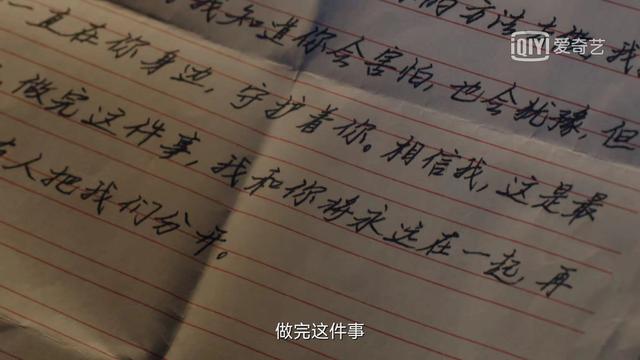 的方法
我知道你会害怕,也会犹豫,但
一直在你身边,守护着你。相信我,这是最
做完这件事,我和你将永远在一起 再
人把我们分开。
iQIYI 爱奇艺
做完这件事